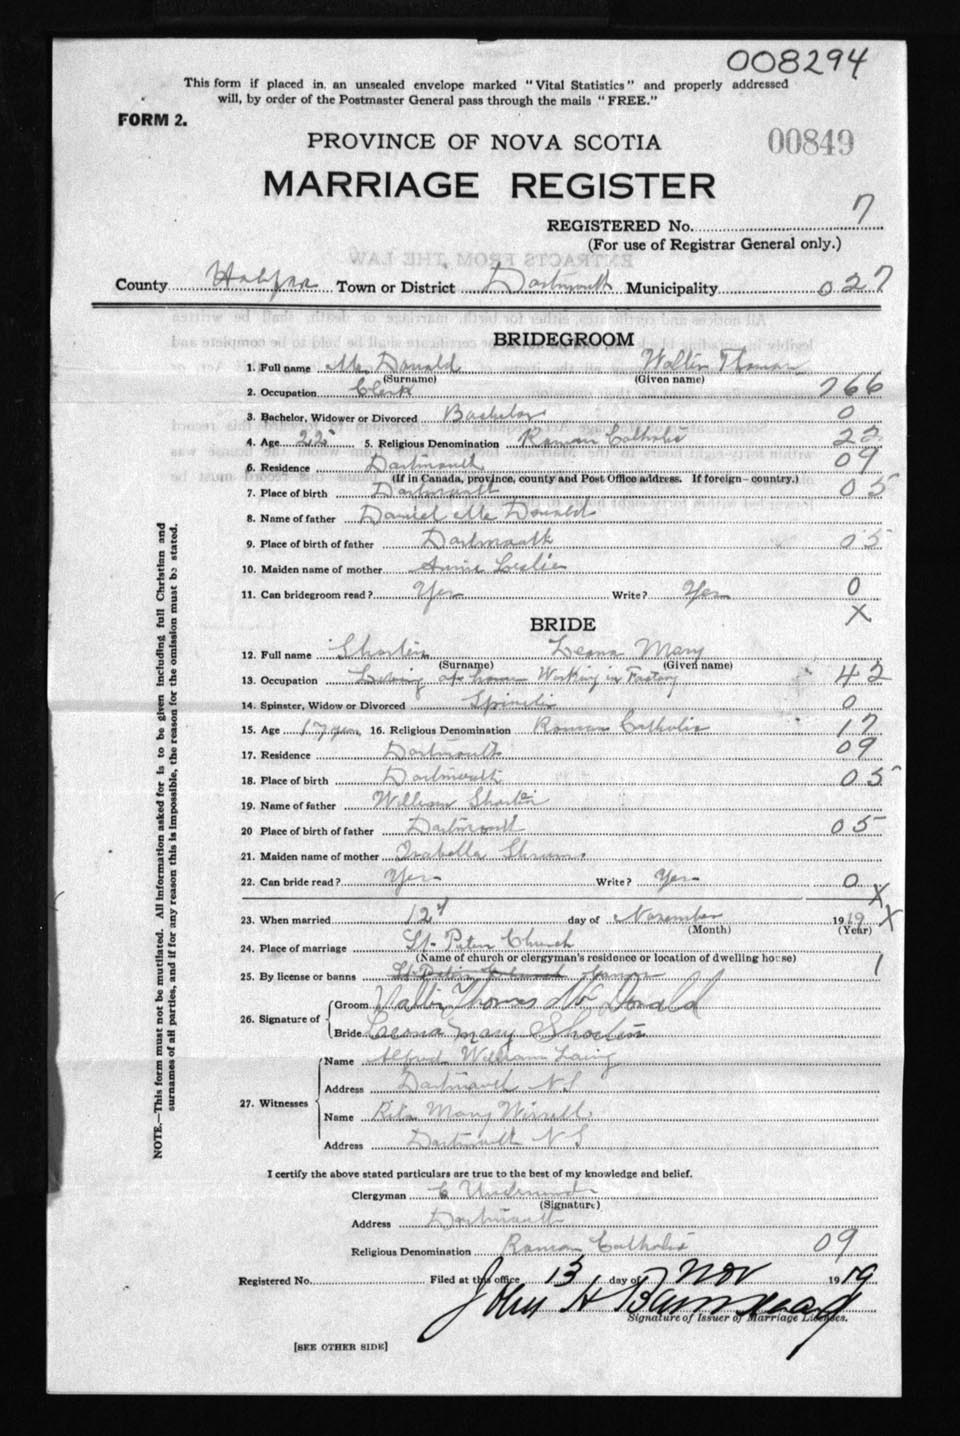 008294
This form if placed in an unsealed envelope marked "Vital Statistics" and properly addressed
will, by order of the Postmaster General pass through the mails "FREE."
FORM 2.
PROVINCE OF NOVA SCOTIA
00849
MARRIAGE REGISTER
REGISTERED No. 7
(For use of Registrar General only.)
EXTRACTS FROM THE LAW
County Halifax Town or District Dartmouth Municipality 027
BRIDEGROOM
1. Full name McDonald Walter Thomas
(Surname) (Given name)
2. Occupation Clerk 266
3. Bachelor, Widower or Divorced Bachelor 0
4. Age 22 5. Religious Denomination Roman Catholic 22
6. Residence Dartmouth 09
(If in Canada, province, county and Post Office address. If foreign - country.)
7. Place of birth Dartmouth 05
8. Name of father Daniel McDonald
9. Place of birth of father Dartmouth 05
10. Maiden name of mother Annie Leslie
11. Can bridegroom read? Yes Write? Yes 0
X
BRIDE
12. Full name Shortin Leona Mary
(Surname) (Given name)
13. Occupation Living at home Working in Factory 42
14. Spinster, Widow or Divorced Spinster 0
15. Age 17 years 16. Religious Denomination Roman Catholic 17
17. Residence Dartmouth 09
18. Place of birth Dartmouth 05
19. Name of father William Shortin
20 Place of birth of father Dartmouth 05
21. Maiden name of mother Isabella Shrum
22. Can bride read? Yes Write? Yes 0
X
23. When married 12th day of November 1919 X
(Month) (Year)
24. Place of marriage St. Peter Church
(Name of church or clergyman's residence or location of dwelling house) 1
25. By license or banns St Peter Church banns
26. Signature of Groom Walter Thomas McDonald
Bride Leona Mary Shortin
27. Witnesses Name Alfred William Laing
Address Dartmouth N S
Name Rita Mary
Address Dartmouth N S
I certify the above stated particulars are true to the best of my knowledge and belief.
Clergyman C Underwood
(Signature)
Address Dartmouth
Religious Denomination Roman Catholic 09
Registered No. Filed at this office 13 day of Nov 1919
John H
Signature of Issuer of Marriage Licenses.
[SEE OTHER SIDE]
NOTE.—This form must not be mutilated. All information asked for is to be given including full Christian and
surnames of all parties, and if for any reason this is impossible, the reason for the omission must be stated.